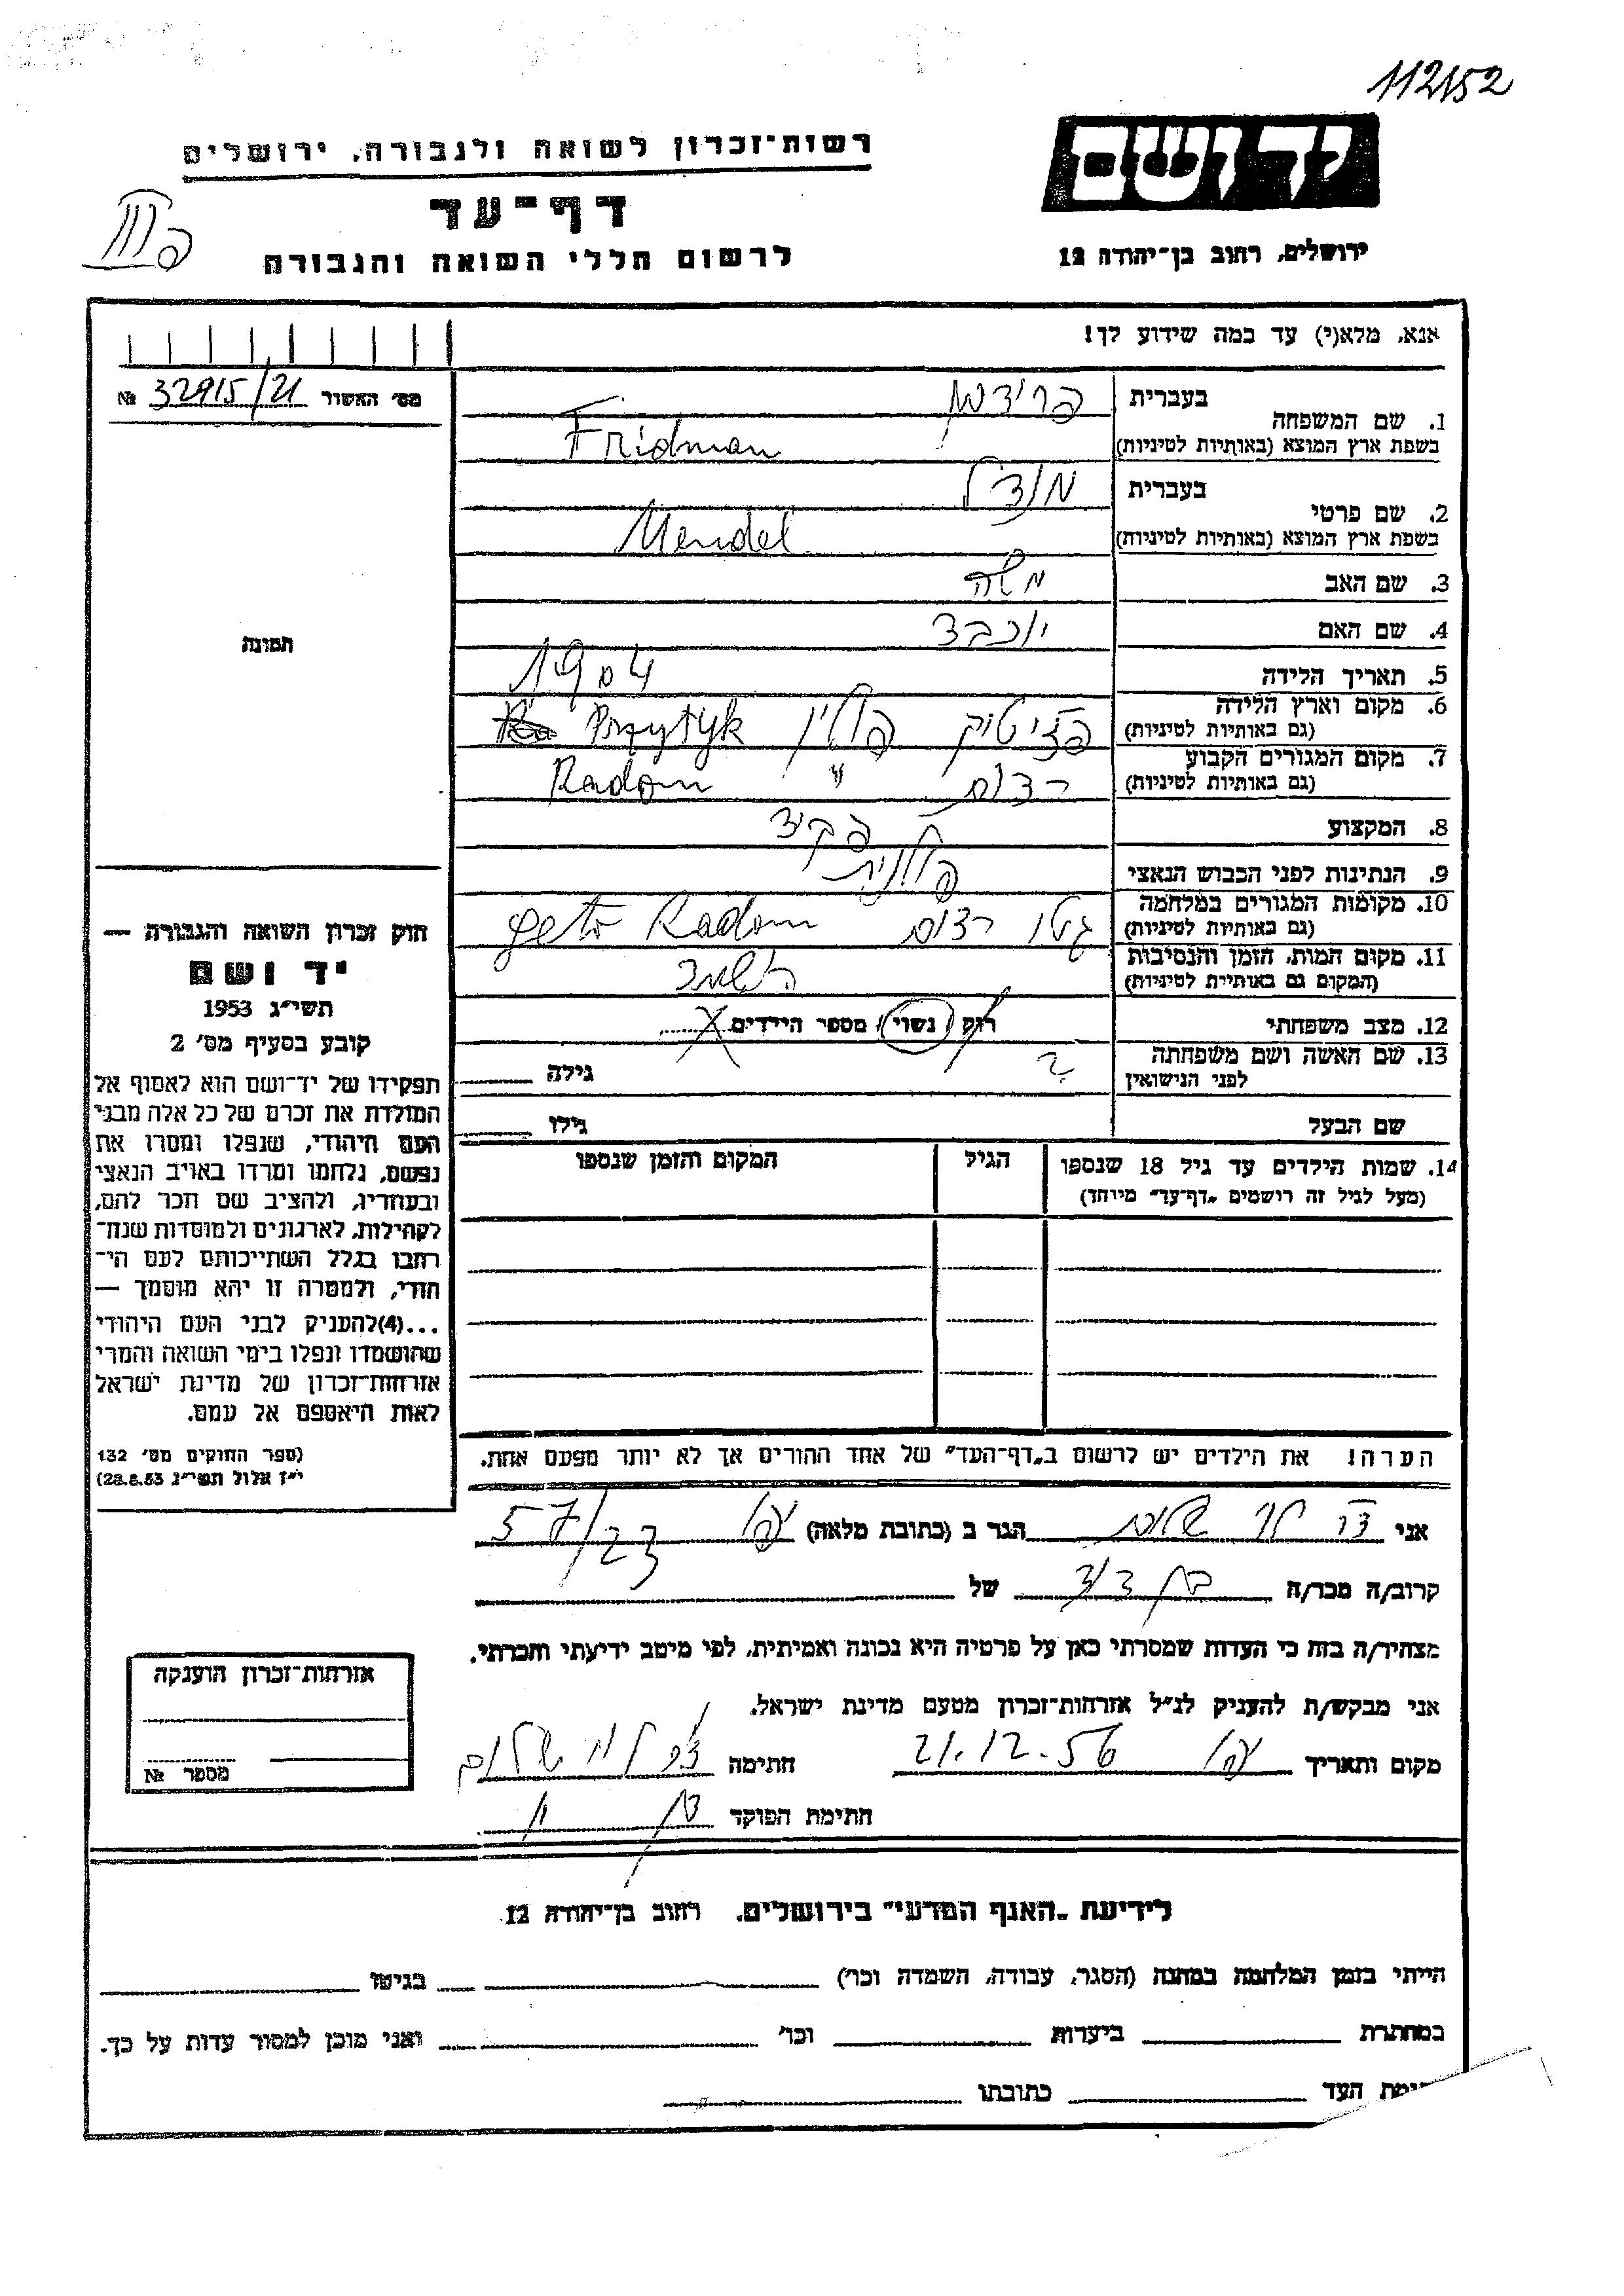 112152
יד ושם
רשות־זכרון לשואה ולגבורה, ירושלים
דף־עד
לרשום חללי השואה והגבורה
ירושלים, רחוב בן־יהודה 12
אנא, מלא(י) עד כמה שידוע לך!
מס׳ האשור № 32915/21
1. שם המשפחה בעברית פרידמן
בשפת ארץ המוצא (באותיות לטיניות) Fridman
2. שם פרטי בעברית מנדל
בשפת ארץ המוצא (באותיות לטיניות) Mendel
3. שם האב משה
4. שם האם יוכבד
תמונה
5. תאריך הלידה 1904
6. מקום וארץ הלידה פשיטיק פולין Przytyk
(גם באותיות לטיניות)
7. מקום המגורים הקבוע רדום " Radom
(גם באותיות לטיניות)
8. המקצוע פקיד
9. הנתינות לפני הכבוש הנאצי פולנית
10. מקומות המגורים במלחמה גטו רדום geto Radom
(גם באותיות לטיניות)
11. מקום המות, הזמן והנסיבות
(המקום גם באותיות לטיניות)
12. מצב משפחתי רוק / נשוי / מספר הילדים X
13. שם האשה ושם משפחתה ? גילה
לפני הנישואין
שם הבעל גילו
14. שמות הילדים עד גיל 18 שנספו הגיל המקום והזמן שנספו
(מעל לגיל זה רושמים „דף־עד״ מיוחד)
חוק זכרון השואה והגבורה —
יד ושם
תשי״ג 1953
קובע בסעיף מס׳ 2
תפקידו של יד־ושם הוא לאסוף אל
המולדת את זכרם של כל אלה מבני
העם היהודי, שנפלו ומסרו את
נפשם, נלחמו ומרדו באויב הנאצי
ובעוזריו, ולהציב שם וזכר להם,
לקהילות, לארגונים ולמוסדות שנח־
רבו בגלל השתייכותם לעם הי־
הודי, ולמטרה זו יהא מוסמך —
...(4)להעניק לבני העם היהודי
שהושמדו ונפלו בימי השואה והמרי
אזרחות־זכרון של מדינת ישראל
לאות היאספם אל עמם.
(ספר החוקים מס׳ 132
י״ז אלול תשי״ג 28.8.53)
הערה! את הילדים יש לרשום ב„דף־העד״ של אחד ההורים אך לא יותר מפעם אחת.
אני הגר ב (כתובת מלאה) 57/23
קרוב/ה מכר/ה בן דוד של
מצהיר/ה בזה כי העדות שמסרתי כאן על פרטיה היא נכונה ואמיתית, לפי מיטב ידיעתי והכרתי.
אני מבקש/ת להעניק לנ״ל אזרחות־זכרון מטעם מדינת ישראל.
מקום ותאריך 21.12.56 חתימה
חתימת הפוקד
אזרחות־זכרון הוענקה
מספר №
לידיעת „האגף המדעי״ בירושלים, רחוב בן־יהודה 12
הייתי בזמן המלחמה במחנה (הסגר, עבודה, השמדה וכו׳) בגיטו
במחתרת ביערות וכו׳ ואני מוכן למסור עדות על כך.
העד כתובתו